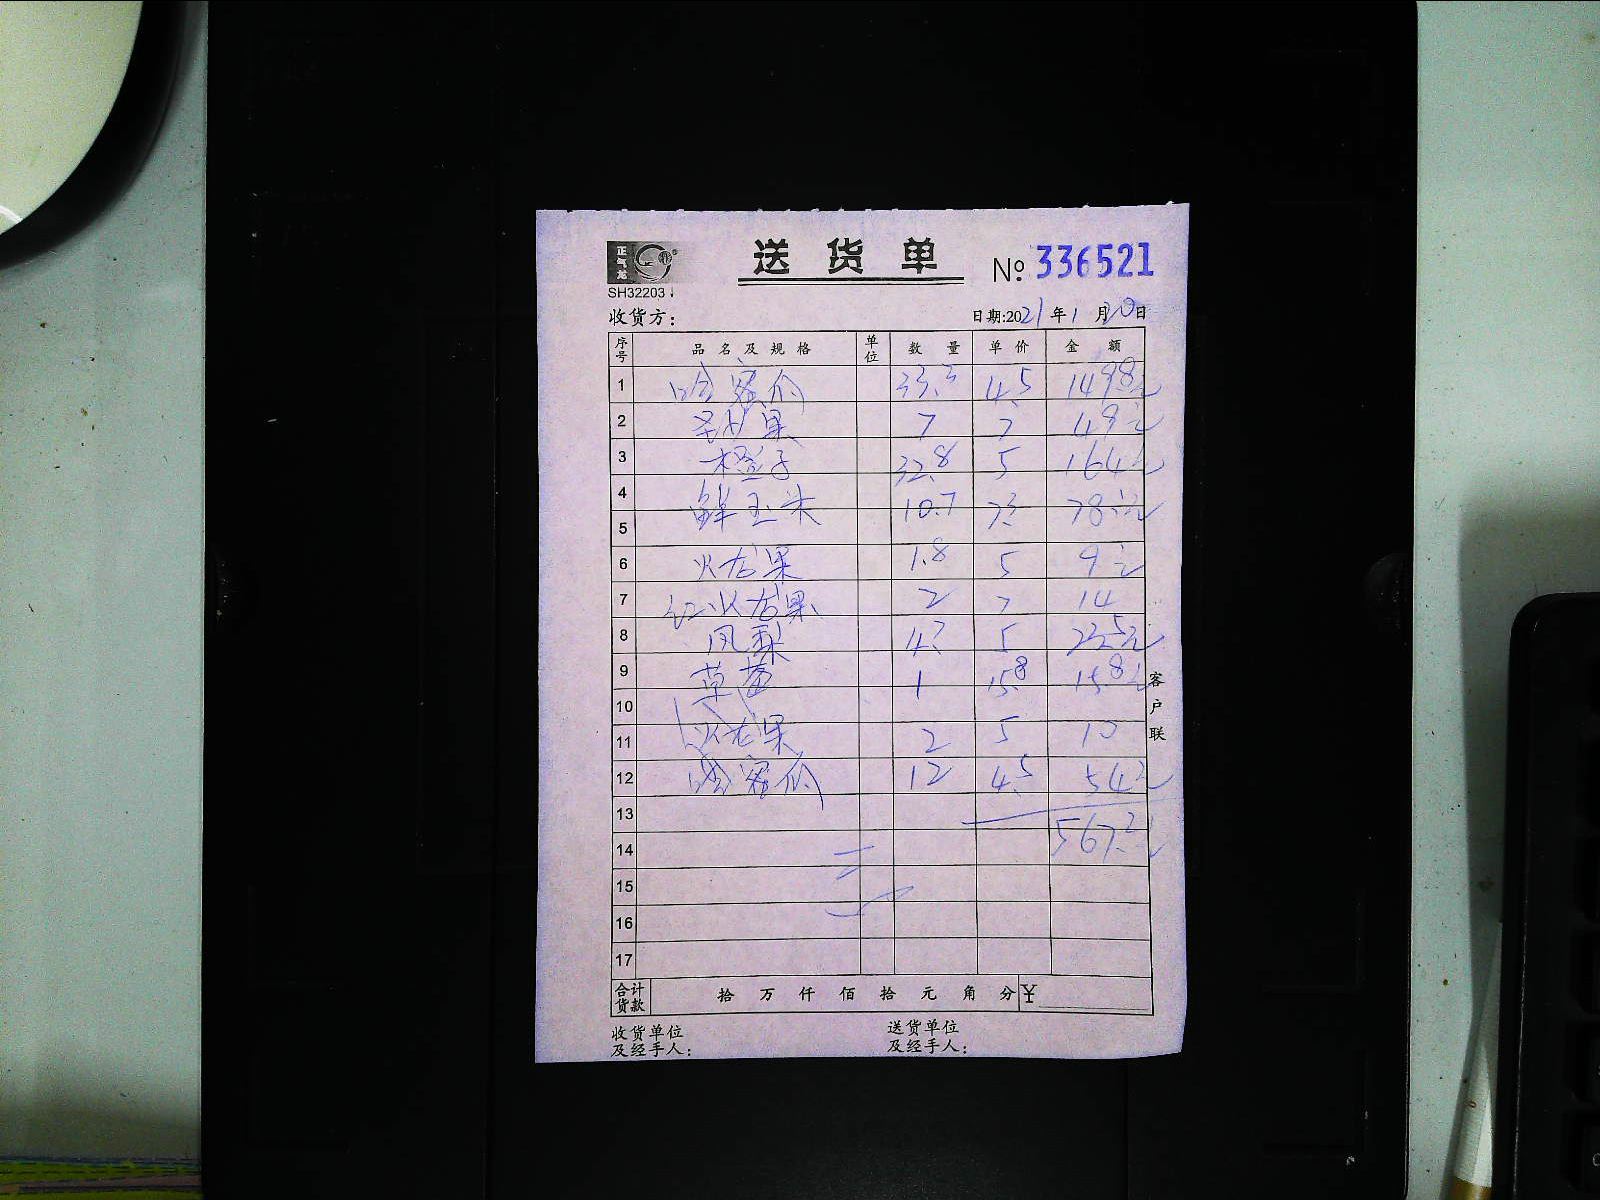 正气龙
SH32203
送货单 № 336521
收货方: 日期:2021年1月20日
序号 品名及规格 单位 数量 单价 金额
1 哈蜜瓜 33.3 4.5 149.8元
2 圣女果 7 7 49元
3 橙子 32.8 5 164元
4 鲜玉米 10.7 7.3 78.1元
5
6 火龙果 1.8 5 9元
7 红火龙果 2 7 14
8 凤梨 4.7 5 23.5元
9 草莓 1 15.8 15.8元
10
11 火龙果 2 5 10
12 哈蜜瓜 12 4.5 54元
13
14 567.2元
15
16
17
合计货款 拾 万 仟 佰 拾 元 角 分 ¥
客户联
收货单位 送货单位
及经手人: 及经手人: